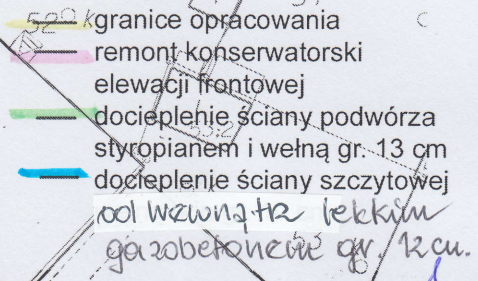 52° k
granice opracowania
c
remont konserwatorski
elewacji frontowej
docieplenie ściany podwórza
53.2
styropianem i wełną gr. 13 cm
docieplenie ściany szczytowej
od wewnątrz lekkim
gazobetonem gr. 12 cm.
53